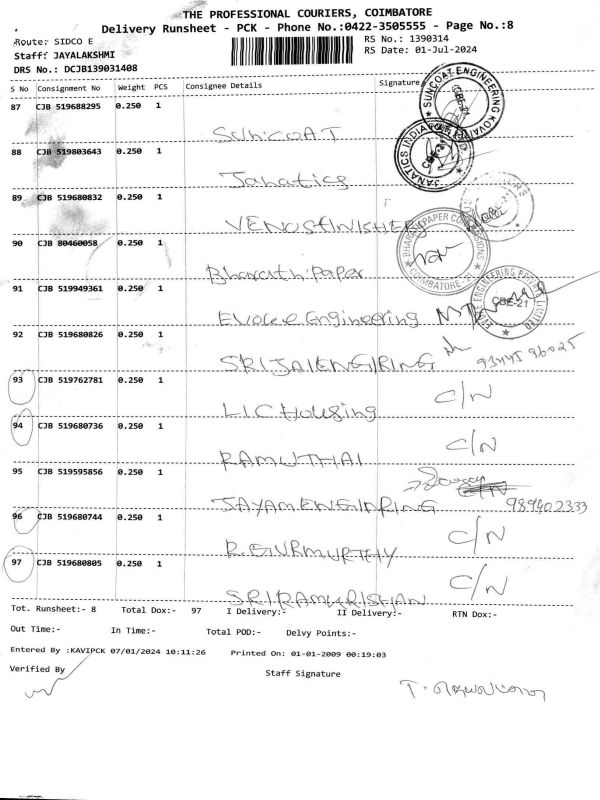 THE PROFESSIONAL COURIERS, COIMBATORE
Delivery Runsheet - PCK - Phone No.:0422-3505555 - Page No.:8
Route: SIDCO E
RS No.: 1390314
Staff: JAYALAKSHMI
RS Date: 01-Jul-2024
DRS No.: DCJB139031408
S No Consignment No Weight PCS Consignee Details Signature
87 CJB 519688295 0.250 1
SUNCOAT
SUNCOAT ENGINEERING KOVAI
88 CJB 519803643 0.250 1
Janatics
JANATICS INDIA
89 CJB 519680832 0.250 1
VENOSFINISHERS
90 CJB 80460058 0.250 1
Bharath paper
BHARATH PAPER CONVERSIONS COIMBATORE-21
91 CJB 519949361 0.250 1
Evokee Engineering
CBE-21
92 CJB 519680826 0.250 1
SRIJAIENGIRING
93445 96025
93 CJB 519762781 0.250 1
LIC Housing C/N
94 CJB 519680736 0.250 1
RAMUTHAI C/N
95 CJB 519595856 0.250 1
JAYAMENGINRING
989402333
96 CJB 519680744 0.250 1
R.GURMURTHY C/N
97 CJB 519680805 0.250 1
SRIRAMKRISHAN C/N
Tot. Runsheet:- 8 Total Dox:- 97 I Delivery:- II Delivery:- RTN Dox:-
Out Time:- In Time:- Total POD:- Delvy Points:-
Entered By :KAVIPCK 07/01/2024 10:11:26 Printed On: 01-01-2009 00:19:03
Verified By
Staff Signature